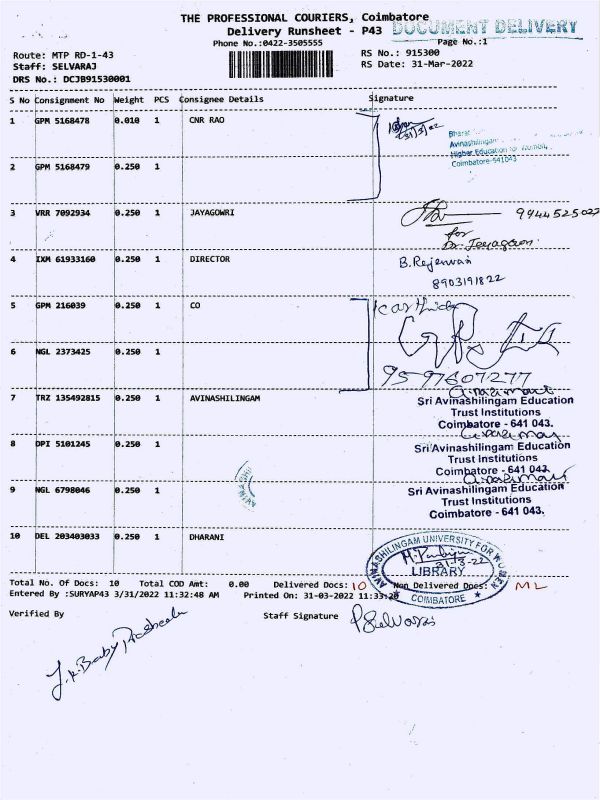 THE PROFESSIONAL COURIERS, Coimbatore
Delivery Runsheet - P43
DOCUMENT DELIVERY
Phone No.:0422-3505555
Page No.:1
Route: MTP RD-1-43
RS No.: 915300
Staff: SELVARAJ
RS Date: 31-Mar-2022
DRS No.: DCJB91530001
S No Consignment No Weight PCS Consignee Details Signature
1 GPM 5168478 0.010 1 CNR RAO
31/3/22
Bharat
Avinashilingam
Higher Education for Women,
Coimbatore-641043
2 GPM 5168479 0.250 1
3 VRR 7092934 0.250 1 JAYAGOWRI
9944525022
for
Dr. Jeyagowri
4 IXM 61933160 0.250 1 DIRECTOR
B. Rejeswari
8903191822
5 GPM 216039 0.250 1 CO
Karthick
6 NGL 2373425 0.250 1
9597607277
7 TRZ 135492815 0.250 1 AVINASHILINGAM
Sri Avinashilingam Education
Trust Institutions
Coimbatore - 641 043.
8 DPI 5101245 0.250 1
Sri Avinashilingam Education
Trust Institutions
Coimbatore - 641 043.
9 NGL 6798046 0.250 1
AVINASHI
Sri Avinashilingam Education
Trust Institutions
Coimbatore - 641 043.
10 DEL 203403033 0.250 1 DHARANI
AVINASHILINGAM UNIVERSITY FOR WOMEN
31/3-22
LIBRARY
COIMBATORE
Total No. Of Docs: 10 Total COD Amt: 0.00 Delivered Docs: 10 Non Delivered Docs: ML
Entered By :SURYAP43 3/31/2022 11:32:48 AM Printed On: 31-03-2022 11:33:20
Verified By
Staff Signature P. Selvaraj